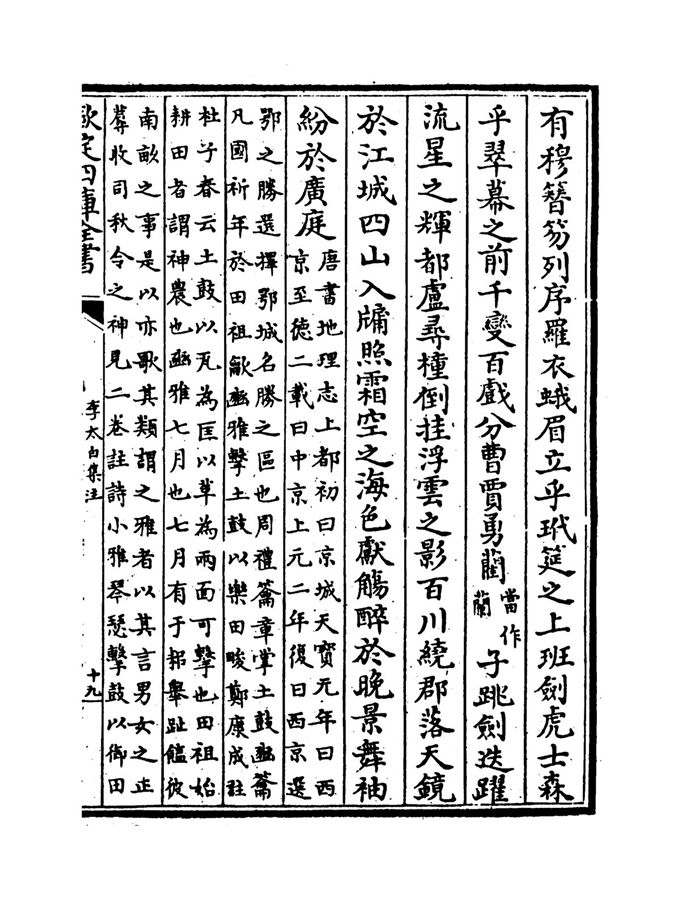 有穆簪笏列序羅衣蛾眉立乎玳筵之上班劍虎士森
乎翠幕之前千變百戲分曹賈勇藺當作
蘭子跳劍迭躍
流星之輝都盧尋橦倒挂浮雲之影百川繞郡落天鏡
於江城四山入牖照霜空之海色獻觴醉於晚景舞袖
紛於廣庭
唐書地理志上都初曰京城天寶元年曰西
京至德二載曰中京上元二年復曰西京選
鄂之勝選擇鄂城名勝之區也周禮籥章掌土鼓豳籥
凡國祈年於田祖龡豳雅擊土鼓以樂田畯鄭康成註
杜子春云土鼓以瓦為匡以革為兩面可擊也田祖始
耕田者謂神農也豳雅七月也七月有于耜舉趾饁彼
南畝之事是以亦歌其類謂之雅者以其言男女之正
蓐收司秋令之神見二卷註詩小雅琴瑟擊鼓以御田
欽定四庫全書
李太白集注
十九